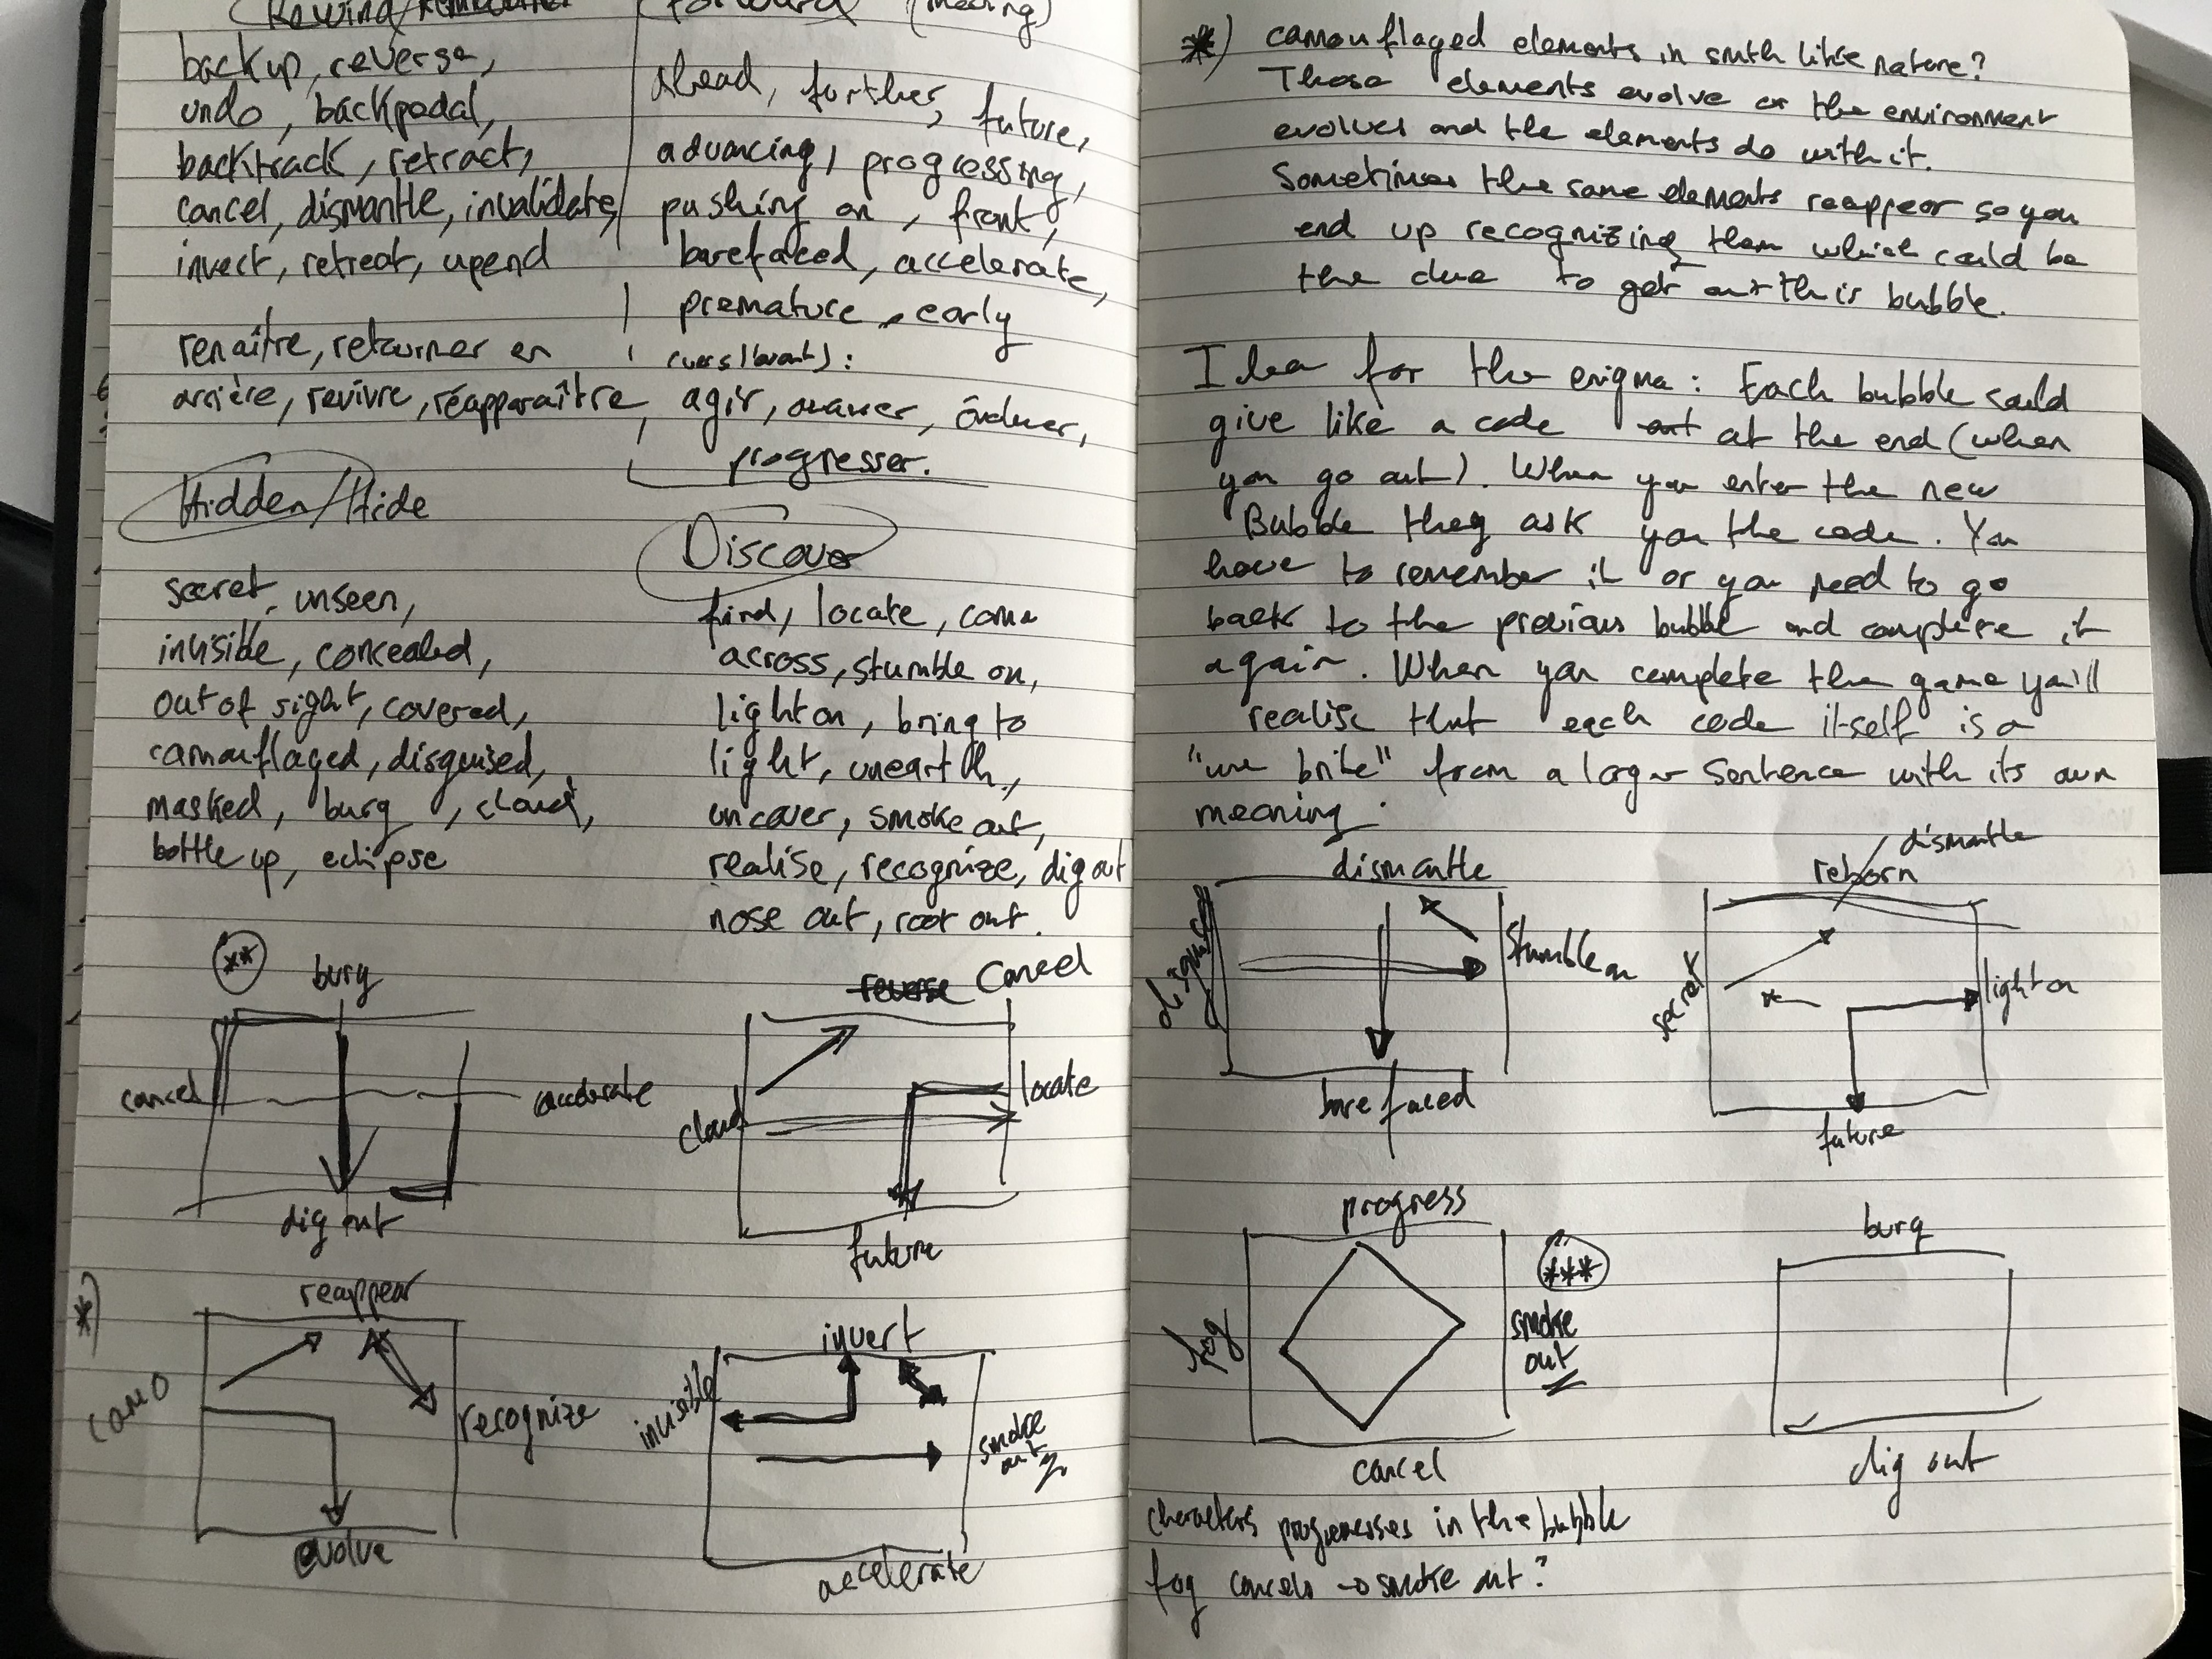 Rewind/
backup, reverse,
undo, backpedal,
backtrack, retract,
cancel, dismantle, invalidate,
invert, retreat, upend
renaître, retourner en
arrière, revivre, réapparaître,
forward (moving)
ahead, further, future,
advancing, progressing,
pushing on, front,
barefaced, accelerate,
premature, early
(vers l'avant):
agir, avancer, évoluer,
progresser.
Hidden/Hide
secret, unseen,
invisible, concealed,
out of sight, covered,
camouflaged, disguised,
masked, bury, cloud,
bottle up, eclipse
Discover
find, locate, come
across, stumble on,
light on, bring to
light, unearth,
uncover, smoke out,
realise, recognize, dig out
nose out, root out.
**
bury
cancel
accelerate
dig out
reverse Cancel
cloud
locate
future
*)
reappear
camo
recognize
evolve
invert
invisible
smoke
out
accelerate
*) camouflaged elements in smth like nature?
Those elements evolve or the environment
evolves and the elements do with it.
Sometimes the same elements reappear so you
end up recognizing them which could be
the clue to get out this bubble.
Idea for the enigma: Each bubble could
give like a code out at the end (when
you go out). When you enter the new
Bubble they ask you the code. You
have to remember it or you need to go
back to the previous bubble and complete it
again. When you complete the game you'll
realise that each code itself is a
"une bribe" from a larger sentence with its own
meaning.
dismantle
disguise
stumble on
barefaced
dismantle
reborn
secret
light on
future
progress
fog
***
smoke
out
cancel
bury
dig out
characters progresses in the bubble
fog cancels → smoke out?